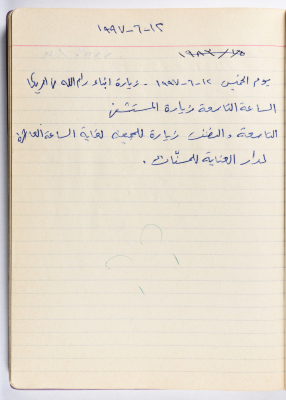 ١٢-٦-١٩٩٧
يوم الخميس ١٢-٦-١٩٩٧ - زيارة ابناء رام الله من امريكا
الساعة التاسعة زيارة المستشفى
التاسعة والنصف زيارة للجمعية لغاية الساعة العاشرة
لدار العناية للمسنّات .